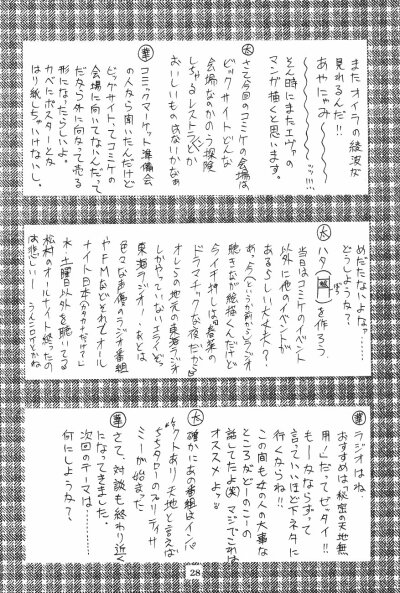 またオイラの綾波が
見れるんだ!!
あやにゃみ〜〜〜〜ッッ!!!
そん時にまたエヴァの
マンガ描くと思います。
大 さて今回のコミケの会場は
ビックサイトどんな
会場なのかのう探険
しちゃるレストランとか
おいしいものはないかなぁ
華 コミックマーケット準備会
の人から聞いたんだけど
ビックサイトってコミケの
会場に向いてないんだって
だから外に向なって売る
形になったらしいよ。
カベにポスターとな
はり紙しちゃいけないし。
めだたないよなァ……
どうしようね?
大 ハタ を作ろう
当日はコミケのイベント
以外に他のイベントが
あるらしい大丈夫?
あっ今(というか前から)ラジオ
聴きなが絵描くんだけど
今イチ押しは「春菜の
ドラマチックな夜だから」
オレらの地元の東海ラジオ
しかやっていないエライぞ
東海ラジオ!あとは
色々な声優のラジオ番組
やFMなどそれとオール
ナイト日本
水、土曜日以外を聴いてる
松村のオールナイト終ったの
は悲しいー
華 ラジオはね、
おすすめは「秘密の天地無
用!」だってゼッタイ!!
もーかならずって
言っていいほど下ネタに
行くなこね!!
この間も女の人の大事な
ところがどーのこーの
話してたよ(笑)マジでこれは
オススメョッ
大 確かにあの番組はインパ
クトあり!天地と言えば
プリティサ
ミーが始まった
華 さて、対談も終わり近く
になってきました。
次回のテーマは……
何にしようね?
28